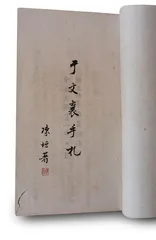 于文襄手札
陳垣署